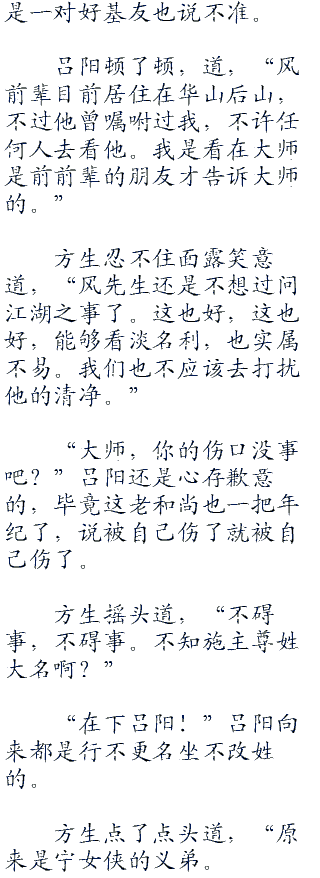 是一对好基友也说不准。
吕阳顿了顿，道，“风
前辈目前居住在华山后山，
不过他曾嘱咐过我，不许任
何人去看他。我是看在大师
是前前辈的朋友才告诉大师
的。”
方生忍不住面露笑意
道，“风先生还是不想过问
江湖之事了。这也好，这也
好，能够看淡名利，也实属
不易。我们也不应该去打扰
他的清净。”
“大师，你的伤口没事
吧？”吕阳还是心存歉意
的，毕竟这老和尚也一把年
纪了，说被自己伤了就被自
己伤了。
方生摇头道，“不碍
事，不碍事。不知施主尊姓
大名啊？”
“在下吕阳！”吕阳向
来都是行不更名坐不改姓
的。
方生点了点头道，“原
来是宁女侠的义弟。